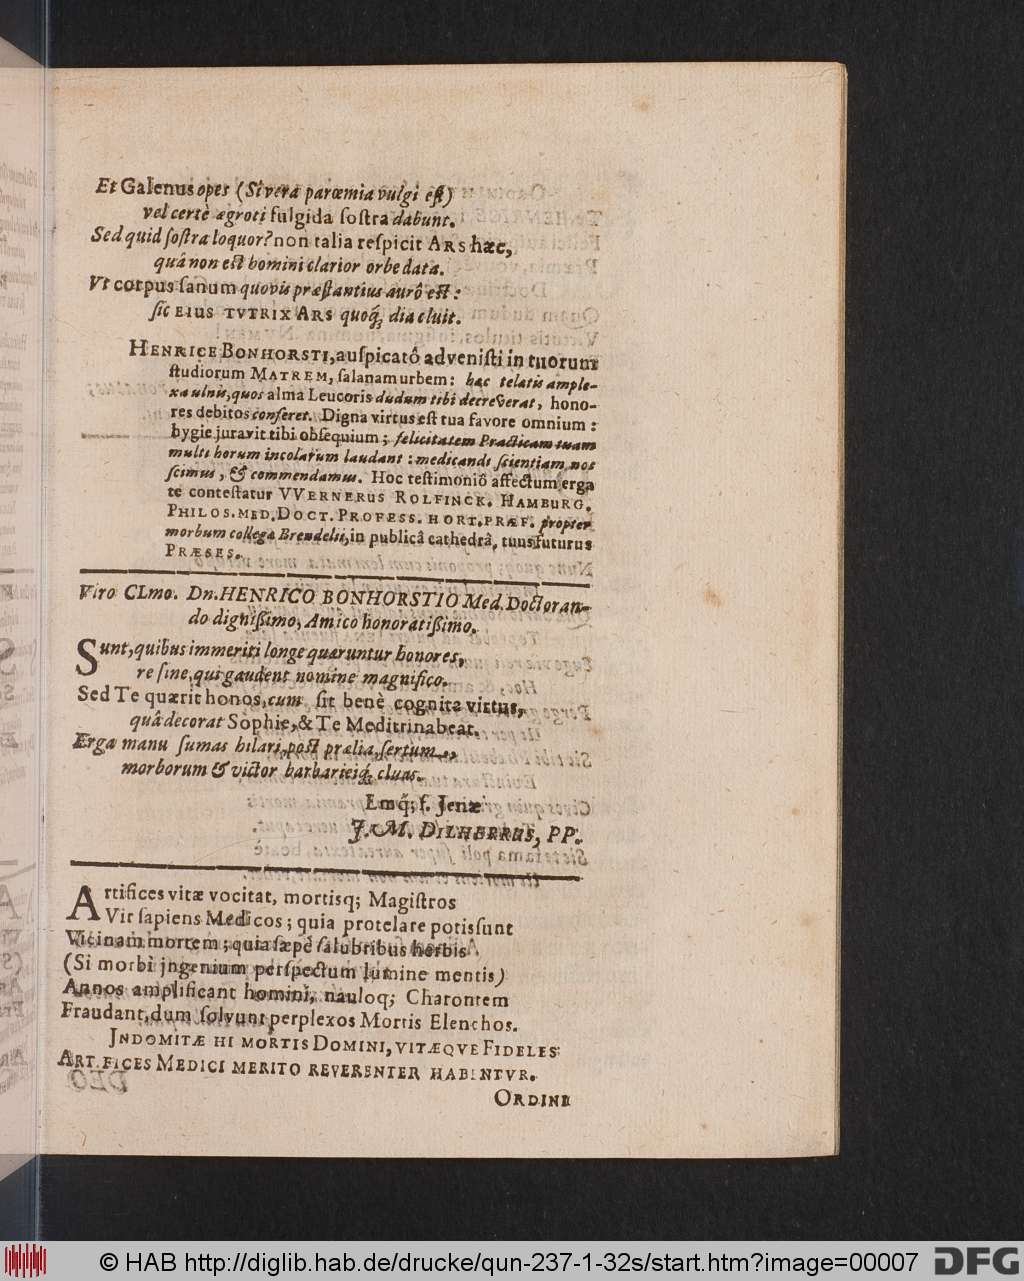 Et Galenus opes (Si vera parœmia vulgi est)
vel certè ægroti fulgida ſoſtra dabunt.
Sed quid ſoſtra loquor? non talia reſpicit ARS hæc,
quâ non est homini clarior orbe data.
Vt corpus ſanum quovis præſtantius aurô est:
ſic EIUS TVTRIX ARS quoq́; dia cluit.
HENRICE BONHORSTI, auſpicatô adveniſti in tuorum
ſtudiorum MATREM, ſalanam urbem: hac telatis ample-
xa ulnis, quos alma Leucoris dudum tibi decreverat, hono-
res debitos conferet. Digna virtus eſt tua favore omnium:
hygie juravit tibi obſequium; felicitatem Practicam tuam
multi horum incolarum laudant: medicandi ſcientiam nos
ſcimus, & commendamus. Hoc teſtimoniô affectum erga
te conteſtatur VVERNERUS ROLFINCK. HAMBURG.
PHILOS. MED. DOCT. PROFESS. HORT. PRÆF. propter
morbum collega Brendelii, in publicâ cathedrâ, tuus futurus
PRÆSES.
Viro CLmo. Dn. HENRICO BONHORSTIO Med. Doctoran-
do digniſſimo, Amico honoratiſſimo.
Sunt, quibus immeriti longe quæruntur honores,
re ſine, qui gaudent nomine magnifico.
Sed Te quærit honos, cum ſit benè cognita virtus,
quâ decorat Sophie, & Te Meditrina beat.
Erga manu ſumas hilari, post prælia, ſertum,
morborum & victor barbarieiq́; cluas.
Emq́; f. Jenæ
J. M. DILHERRUS, PP.
Artifices vitæ vocitat, mortisq; Magiſtros
Vir ſapiens Medicos; quia protelare potis ſunt
Vicinam mortem; quia ſæpè ſalubribus herbis
(Si morbi jngenium perſpectum lumine mentis)
Annos amplificant homini, nauloq; Charontem
Fraudant, dum ſolvunt perplexos Mortis Elenchos.
JNDOMITÆ HI MORTIS DOMINI, VITÆQVE FIDELES
ARTIFICES MEDICI MERITO REVERENTER HABENTVR.
ORDINE
© HAB http://diglib.hab.de/drucke/qun-237-1-32s/start.htm?image=00007
DFG